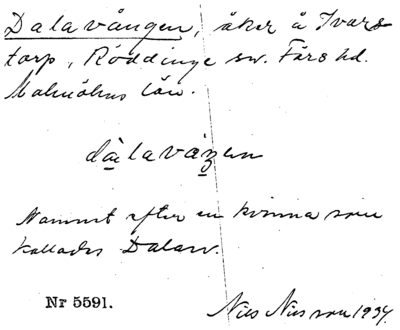 Dalavången, åker å Ivars
torp, Röddinge sn. Färs hd.
Malmöhus län.
dàlaváŋen
Namnet efter en kvinna som
kallades Dalan.
Nr 5591.
Nils Nilsson 1934.